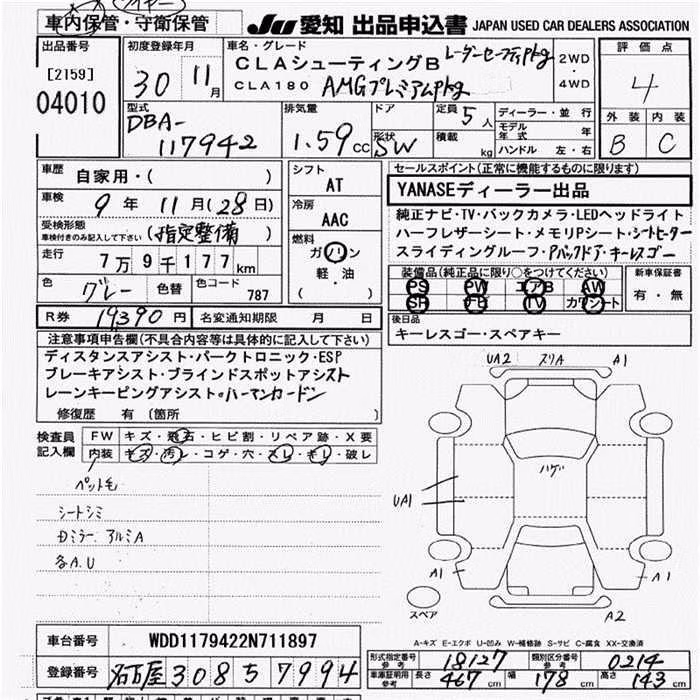 車内保管・守衛保管
JU 愛知 出品申込書 JAPAN USED CAR DEALERS ASSOCIATION
出品番号
[2159]
04010
初度登録年月
30 11月
車名・グレード
CLAシューティングB レーダーセーフティPkg
CLA180 AMGプレミアムPkg
2WD
・
4WD
評価点
4
外装 内装
B C
型式
DBA-
117942
排気量
1.59cc
ドア
形状
SW
定員 5人
積載 kg
ディーラー・並行
モデル年式 年
ハンドル 左・右
車歴
自家用・( )
車検
9年 11月(28日)
受検形態
車検付きのみ記入して下さい
(指定整備)
走行
7万9千177km
色 グレー 色替 色コード 787
シフト
AT
冷房
AAC
燃料
ガソリン
軽・油
( )
セールスポイント(正常に機能するものに限ります)
YANASEディーラー出品
純正ナビ・TV・バックカメラ・LEDヘッドライト
ハーフレザーシート・メモリPシート・シートヒーター
スライディングルーフ・Pバックドア・キーレスゴー
装備品(純正品に限り○をつけてください)
PS PW エアB AW
SR ナビ TV カワシート
新車保証書
有・無
R券 19390円 名変通知期限 月 日
後日品
キーレスゴー・スペアキー
注意事項申告欄(不具合内容等は具体的に記入して下さい)
ディスタンスアシスト・パークトロニック・ESP
ブレーキアシスト・ブラインドスポットアシスト
レーンキーピングアシスト・ハーマンカードン
修復歴 有 (箇所 )
検査員
記入欄
FW キズ・飛石・ヒビ割・リペア跡・X要
内装 キズ・汚レ・コゲ・穴・スレ・キレ・破レ
ペット毛
シートシミ
Dミラー アルミA
各A.U
UA2 スリA A1
ハゲ
UA1
A1 A1
スペア
A2
A-キズ E-エクボ U-凹み W-補修跡 S-サビ C-腐食 XX-交換済
車台番号 WDD1179422N711897
登録番号 名古屋 308 5 7994
形式指定番号
参考
18127
類別区分番号
参考
0214
車庫証明用
参考
長さ 467cm 幅 178cm 高さ 143cm